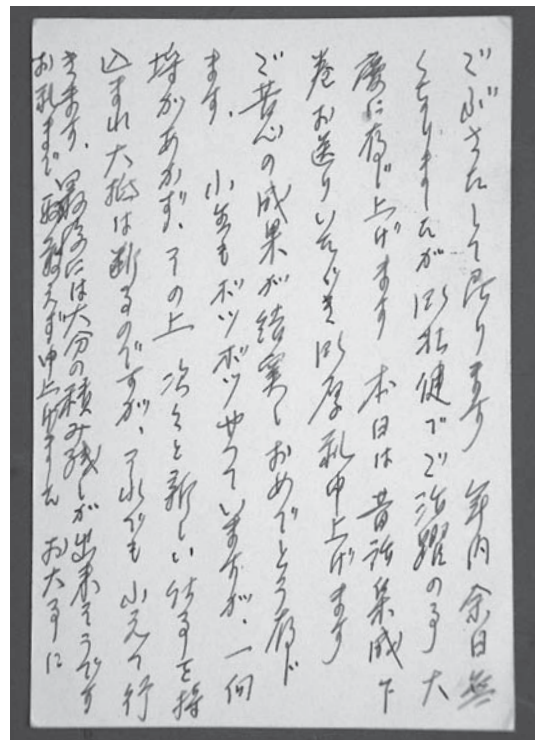 ごぶさたして居ります 年内余日無
くなりましたが御壮健でご活躍の事大
慶に存じ上げます 本日は昔話集成下
巻お送りいただき御厚礼申上げます
ご苦心の成果が結実しおめでとう存じ
ます。 小生もボツボツやっていますが、一向
埒があかず、その上 次々と新しい仕事を持
込まれ大抵は断るのですが、それでも ふえて行
きます。 最後には大分の積み残しが出来そうです
お礼まで 取敢えず申上げました お大事に